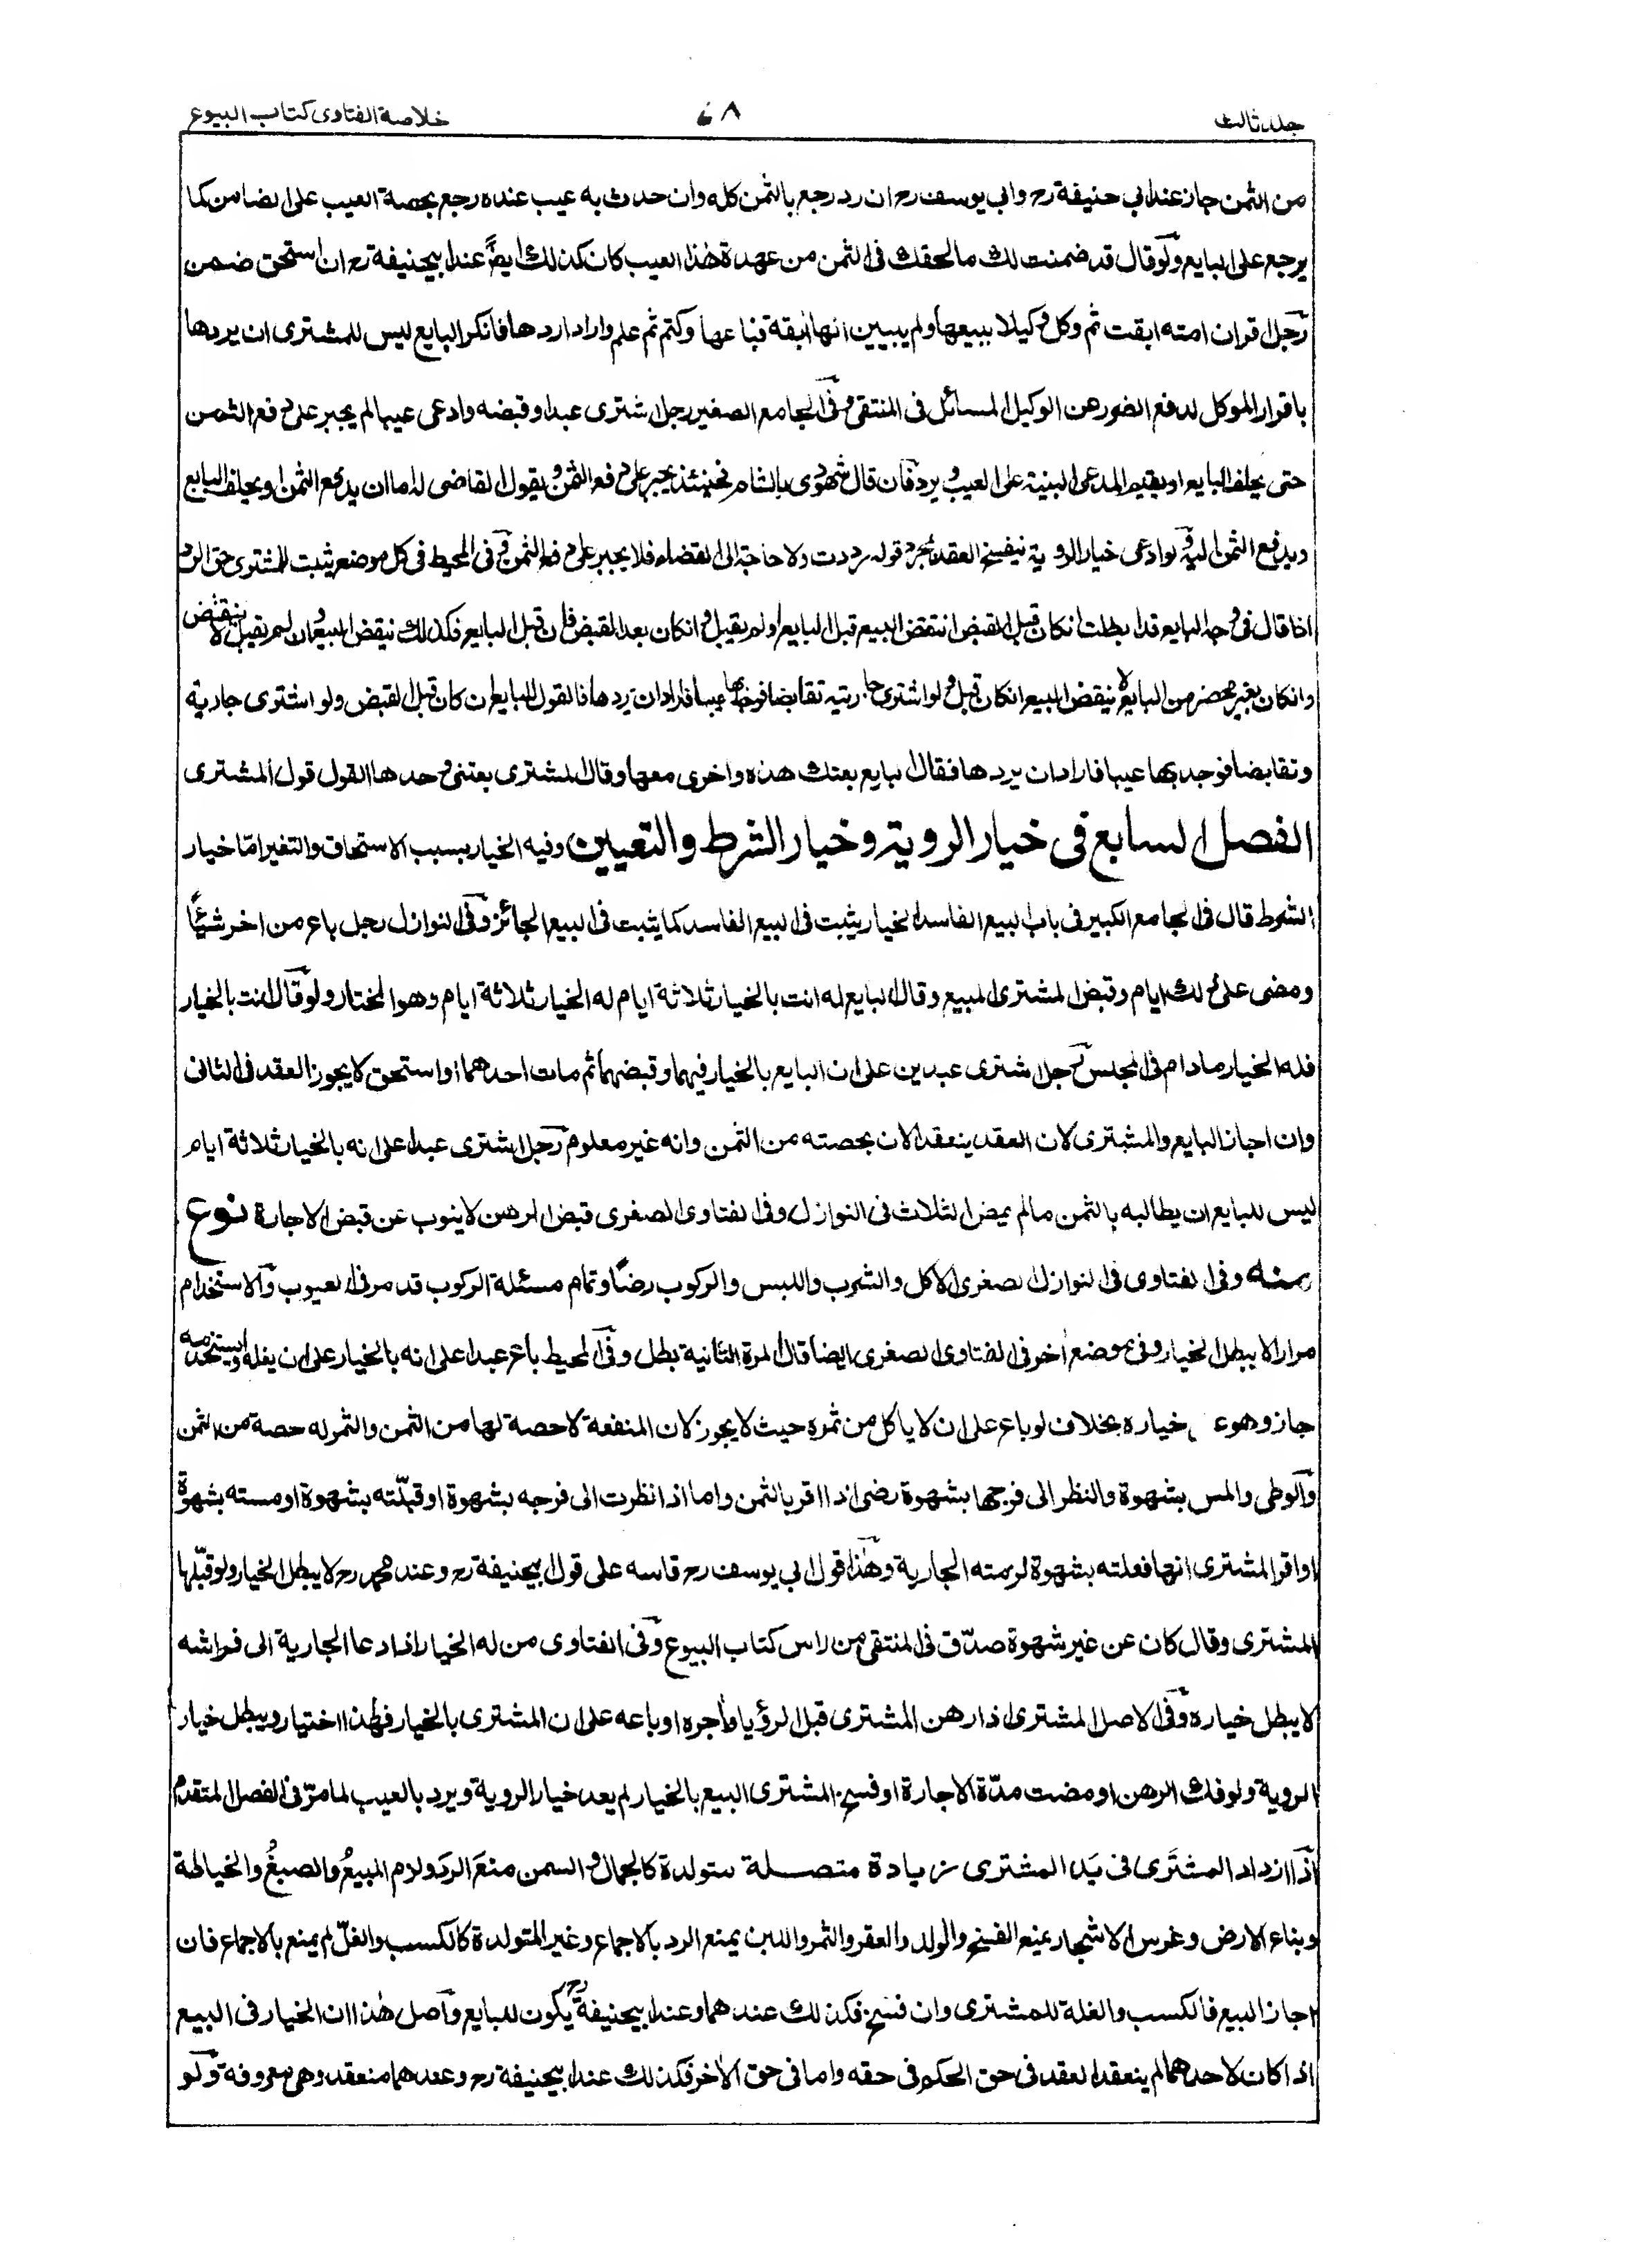 جلد ثالث
خلاصة الفتاوى كتاب البيوع
من الثمن جاز عند ابي حنيفة رح وابي يوسف رح ان رد رجع بالثمن كله وان حدث به عيب عنده رجع بحصة العيب على الضامن كما
يرجع على البايع ولو قال قد ضمنت لك ما لحقك فى الثمن من عهدة هذا العيب كان كذلك ايضا عند ابيحنيفة رح ان استحق ضمن
رجل اقر ان امته ابقت ثم وكل وكيلا ببيعها ولم يبيين انها ابقة فباعها وكتم ثم علم واراد ردها فانكر البايع ليس للمشترى ان يردها
باقرار الموكل لدفع الضرر عن الوكيل المسائل فى المنتقى وفى الجامع الصغير رجل اشترى عبدا وقبضه وادعى عيبا لم يجبر على دفع الثمن
حتى يحلف البايع او يقيم المدعى البينة على العيب ويرد فان قال شهودى بالشام فحينئذ يجبر على دفع الثمن ويقول القاضى له اما ان يدفع الثمن او يحلف البايع
ويدفع الثمن اليه ولو ادعى خيار الروية ينفسخ العقد بمجرد قوله رددت ولا حاجة الى القضاء فلا يجبر على دفع الثمن وفى المحيط فى كل موضع يثبت للمشترى حق الرد
اذا قال فى وجه البايع قد ابطلت انكان قبل القبض انتقض البيع قبل البايع او لم يقبل وانكان بعد القبض فان قبل البايع فكذلك ينقض البيع وان لم يقبل لا ينقض
وانكان بغير محضر من البايع لا ينقض البيع انكان قبل ولو اشترى جاريتة تقابضا فوجد بها عيبا فاراد ان يردها فالقول للبايع ان كان قبل القبض ولو اشترى جارية
وتقابضا فوجد بها عيبا فاراد ان يردها فقال البايع بعتك هذه واخرى معها وقال المشترى بعتنى وحدها القول قول المشترى
الفصل السابع فى خيار الروية وخيار الشرط والتعيين وفيه الخيار بسبب الاستحقاق والتغير اما خيار
الشرط قال فى الجامع الكبير فى باب البيع الفاسد الخيار يثبت فى البيع الفاسد كما يثبت فى البيع الجائز وفى النوازل رجل باع من اخر شيئا
ومضى على ذلك ايام وقبض المشترى المبيع وقال البايع له انت بالخيار ثلاثة ايام له الخيار ثلاثة ايام وهو المختار ولو قال انت بالخيار
فله الخيار مادام فى المجلس رجل اشترى عبدين على ان البايع بالخيار فيهما وقبضهما ثم مات احدهما او استحق لا يجوز العقد فى الثانى
وان اجاز البايع والمشترى لان العقد ينعقد الان بحصته من الثمن وانه غير معلوم رجل اشترى عبدا على انه بالخيار ثلاثة ايام
ليس للبايع ان يطالبه بالثمن مالم يمض الثلاث فى النوازل وفى الفتاوى الصغرى قبض الرهن لا ينوب عن قبض الاجارة نوع
منه وفى الفتاوى فى النوازل الصغرى الاكل والشرب واللبس والركوب رضًا وتمام مسئلة الركوب قد مر فى العيوب والاستخدام
مرارا لا يبطل الخيار وفى موضع اخر فى الفتاوى الصغرى ايضا قال المرة الثانية بطل وفى المحيط باع عبدا على انه بالخيار على ان يغله ويستخدمه
جاز وهو خياره بخلاف لو باع على ان لا ياكل من ثمره حيث لا يجوز لان المنفعة لا حصة لها من الثمن والثمر له حصة من الثمن
والوطى والمس بشهوة والنظر الى فرجها بشهوة رضى اذا اقر بالثمن واما اذا نظرت الى فرجه بشهوة او قبّلته بشهوة او مسته بشهوة
او اقر المشترى انها فعلته بشهوة لزمته الجارية وهذا قول ابي يوسف رح قاسه على قول ابيحنيفة رح وعند محمد رح لا يبطل الخيار ولو قبّلها
المشترى وقال كان عن غير شهوة صدّق فى المنتقى من راس كتاب البيوع وفى الفتاوى من له الخيار اذا دعا الجارية الى فراشه
لا يبطل خياره وفى الاصل المشترى اذا رهن المشترى قبل الرؤيا او أجره او باعه على ان المشترى بالخيار فهذا اختيار ويبطل خيار
الروية ولو فك الرهن او مضت مدّة الاجارة او فسخ المشترى البيع بالخيار لم يعد خيار الروية ويرد بالعيب لما مرّ فى الفصل المتقدم
اذا ازداد المشترى فى يد المشترى زيادة متصلة متولدة كالجمال والسمن منع الرد ولزم البيع والصبغ والخياطة
وبناء الارض وغرس الاشجار يمنع الفسخ والولد والعقر والثمر واللبن يمنع الرد بالاجماع وغير المتولدة كالكسب والغلّ لم يمنع بالاجماع فان
اجاز البيع فالكسب والغلة للمشترى وان فسخ فكذلك عندهما وعند ابيحنيفة رح يكون للبايع واصل هذا ان الخيار فى البيع
اذا كان لاحدهما لم ينعقد العقد فى حق الحكم فى حقه واما فى حق الاخر فكذلك عند ابيحنيفة رح وعندهما منعقد وهى معروفة ولو